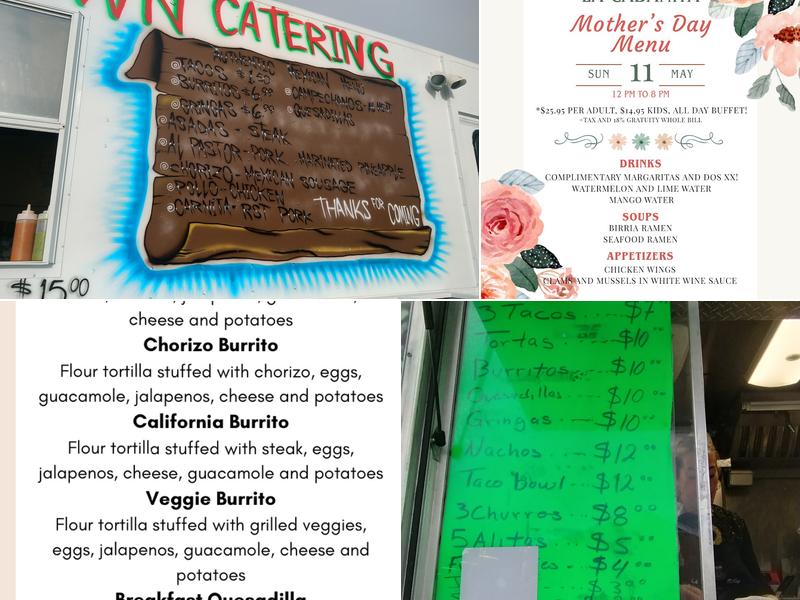 WN CATERING
AUTHENTIC MEXICAN EATING
TACOS $
BURRITOS $6.
GRINGAS $6.
CAMPECHANOS
QUESADILLAS
ASADAS - STEAK
AL PASTOR - PORK MARINATED PINEAPPLE
CHORIZO - MEXICAN SOUSAGE
POLLO - CHICKEN
CARNITA - RST PORK
THANKS FOR COMING
$15.00
Mother's Day
Menu
SUN 11 MAY
12 PM TO 8 PM
*$25.95 PER ADULT, $14.95 KIDS, ALL DAY BUFFET!
*TAX AND 18% GRATUITY WHOLE BILL
DRINKS
COMPLIMENTARY MARGARITAS AND DOS XX!
WATERMELON AND LIME WATER
MANGO WATER
SOUPS
BIRRIA RAMEN
SEAFOOD RAMEN
APPETIZERS
CHICKEN WINGS
CLAMS AND MUSSELS IN WHITE WINE SAUCE
cheese and potatoes
Chorizo Burrito
Flour tortilla stuffed with chorizo, eggs,
guacamole, jalapenos, cheese and potatoes
California Burrito
Flour tortilla stuffed with steak, eggs,
jalapenos, cheese, guacamole and potatoes
Veggie Burrito
Flour tortilla stuffed with grilled veggies,
eggs, jalapenos, guacamole, cheese and
potatoes
Breakfast Quesadilla
3 Tacos ..... $7
Tortas ... $10
Burritos ... $10
Quesadillas ... $10
Gringas ... $10
Nachos ... $12
Taco Bowl ... $12
3 Churros ... $8
5 Alitas ... $5
$4